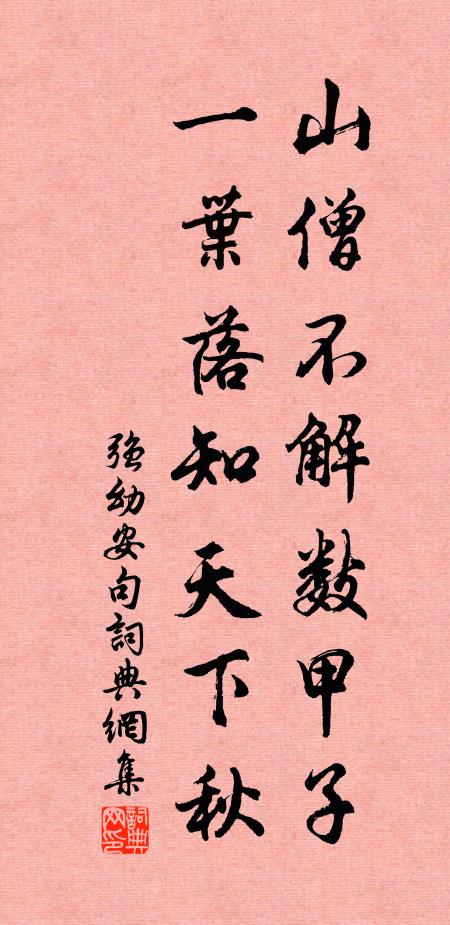 山僧不解数甲子
一葉落知天下秋
強幼安句詞典網集
詞典网印